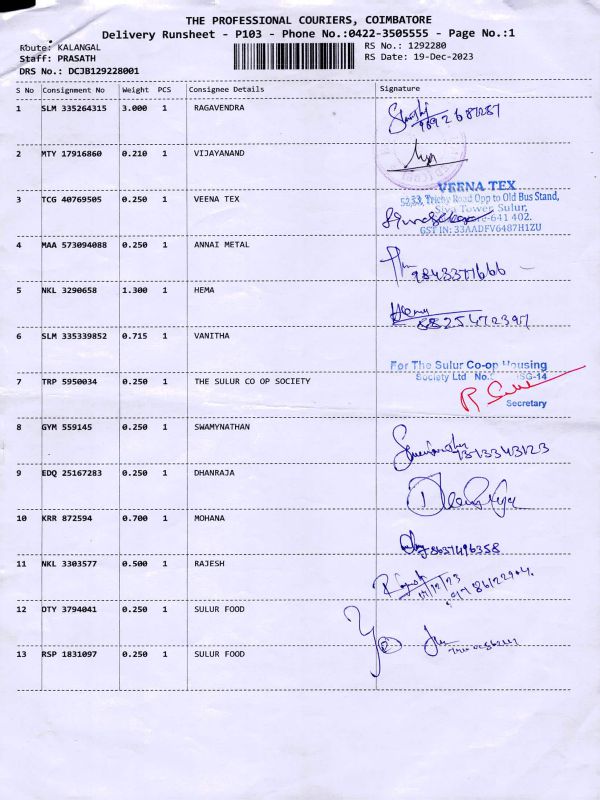 THE PROFESSIONAL COURIERS, COIMBATORE
Delivery Runsheet - P103 - Phone No.:0422-3505555 - Page No.:1
Route: KALANGAL
RS No.: 1292280
Staff: PRASATH
RS Date: 19-Dec-2023
DRS No.: DCJB129228001
S No Consignment No Weight PCS Consignee Details Signature
1 SLM 335264315 3.000 1 RAGAVENDRA
2 MTY 17916860 0.210 1 VIJAYANAND
3 TCG 40769505 0.250 1 VEENA TEX
VEENA TEX
52,33, Trichy Road Opp to Old Bus Stand,
Siva Tower, Sulur,
641 402.
GST IN: 33AADFV6487H1ZU
4 MAA 573094088 0.250 1 ANNAI METAL
9843377666
5 NKL 3290658 1.300 1 HEMA
Hema
8825472397
6 SLM 335339852 0.715 1 VANITHA
For The Sulur Co-op Housing
Society Ltd No.
7 TRP 5950034 0.250 1 THE SULUR CO OP SOCIETY
Secretary
8 GYM 559145 0.250 1 SWAMYNATHAN
9 EDQ 25167283 0.250 1 DHANRAJA
10 KRR 872594 0.700 1 MOHANA
8637496358
11 NKL 3303577 0.500 1 RAJESH
12 DTY 3794041 0.250 1 SULUR FOOD
13 RSP 1831097 0.250 1 SULUR FOOD